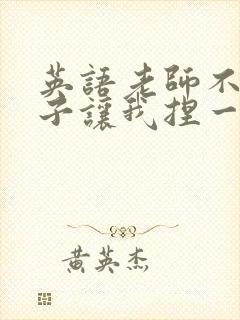 英語老師不
子讓我捏一
黃英杰